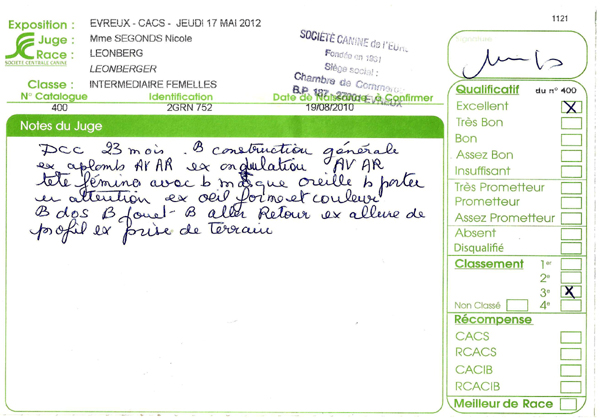 1121
Exposition : EVREUX - CACS - JEUDI 17 MAI 2012
Juge : Mme SEGONDS Nicole
Race : LEONBERG
SOCIÉTÉ CENTRALE CANINE
LEONBERGER
Classe : INTERMEDIAIRE FEMELLES
SOCIÉTÉ CANINE de l'EURE
Fondée en 1931
Siège social :
Chambre de Commerce
B.P. 187 - 27001 EVREUX
N° Catalogue Identification Date de Naissance à Confirmer
400 2GRN 752 19/08/2010
Notes du Juge
DCC 23 mois . B construction générale
ex aplombs AV AR ex angulation AV AR
tete fémine avec b masque oreille b porter
en attention ex oeil forme et couleur
B dos B fouet - B aller Retour ex allure de
profil ex prise de terrain
Signature
Qualificatif du n° 400
Excellent X
Très Bon
Bon
Assez Bon
Insuffisant
Très Prometteur
Prometteur
Assez Prometteur
Absent
Disqualifié
Classement 1er
2e
3e X
Non Classé 4e
Récompense
CACS
RCACS
CACIB
RCACIB
Meilleur de Race